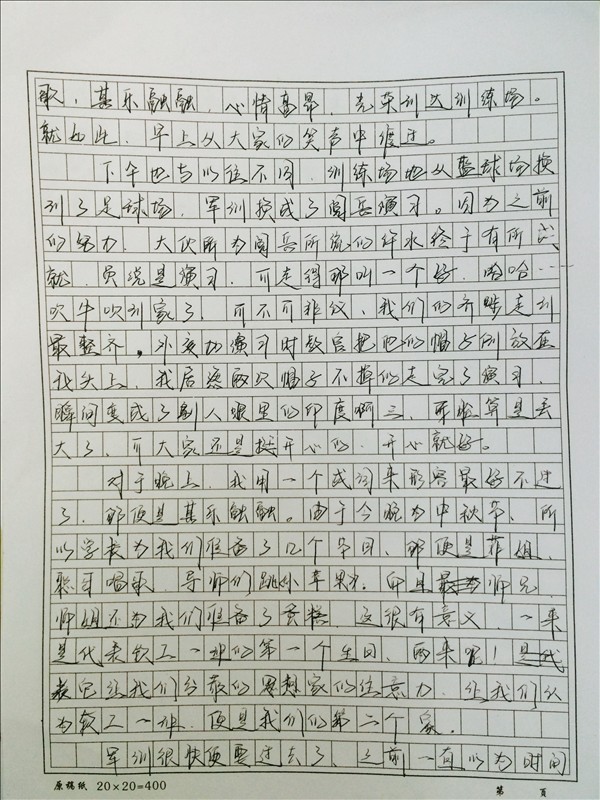 歌,其乐融融,心情高昂,光荣到达训练场。
就如此,早上从大家的笑声中度过。
下午也与以往不同,训练场地从篮球场换
到了足球场,军训换成了阅兵演习。因为之前
的努力,大伙所为阅兵所流的汗水终于有所成
就,虽说是演习,可走得那叫一个好,哈哈…
吹牛吹到家了,可不可非议,我们的齐步走到
最整齐。小亥加演习时教官把他的帽子倒放在
我头上,我居然两次帽子不掉的走完了演习,
瞬间变成了别人眼里的印度啊三,形象算是丢
大了,可大家还是挺开心的,开心就好。
对于晚上,我用一个成词来形容最好不过
了,那便是其乐融融。由于今晚为中秋节,所
以学长为我们准备了几个节目,那便是花姐、
聪哥唱歌,导师们跳小苹果,而且师兄、
师姐还为我们准备了蛋糕,这很有意义,一来
是代表软工一班的第一个生日,两来呢!是代
表它给我们分散的想家的注意力,让我们认
为软工一班,便是我们的第二个家。
军训很快便要过去了,之前一直以为时间
原稿纸 20×20=400
第 页